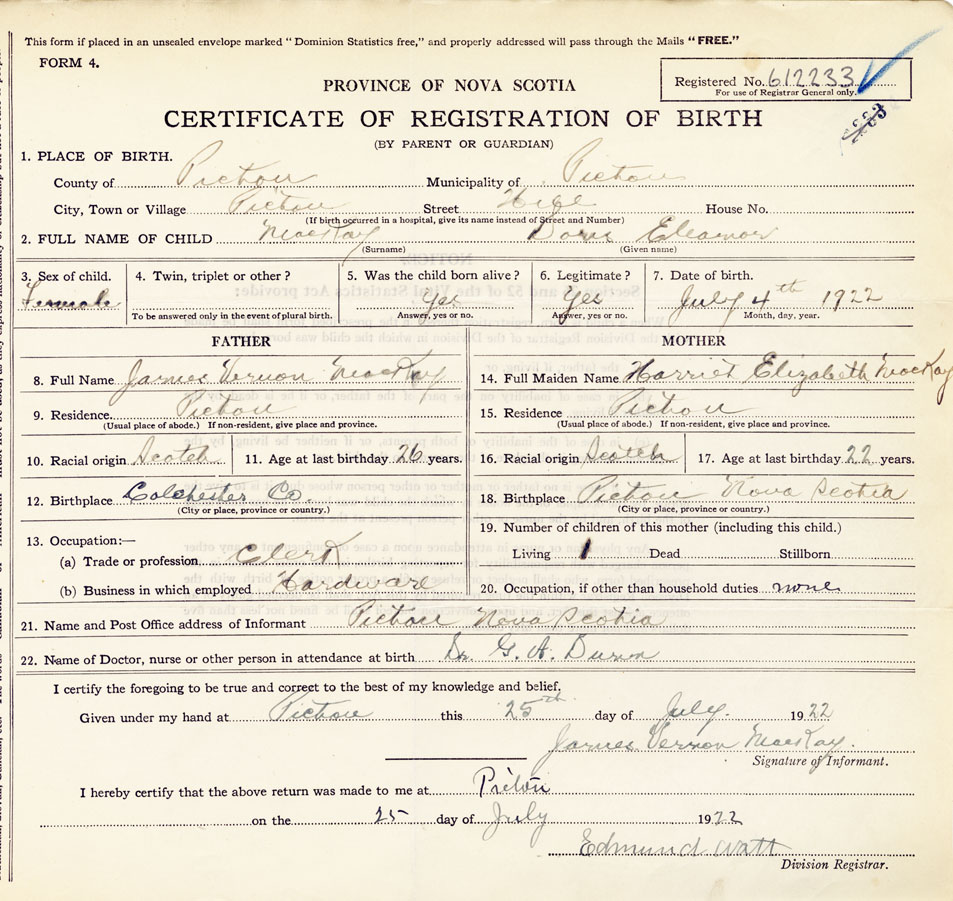 This form if placed in an unsealed envelope marked "Dominion Statistics free," and properly addressed will pass through the Mails "FREE."
FORM 4.
Registered No. 612233
For use of Registrar General only.
PROVINCE OF NOVA SCOTIA
CERTIFICATE OF REGISTRATION OF BIRTH
(BY PARENT OR GUARDIAN)
1. PLACE OF BIRTH.
County of Pictou Municipality of Pictou
City, Town or Village Pictou Street House No.
(If birth occurred in a hospital, give its name instead of Street and Number)
2. FULL NAME OF CHILD MacKay Doris Eleanor
(Surname) (Given name)
3. Sex of child. 4. Twin, triplet or other? 5. Was the child born alive? 6. Legitimate? 7. Date of birth.
Female Yes Yes July 4th 1922
To be answered only in the event of plural birth. Answer, yes or no. Answer, yes or no. Month, day, year.
FATHER MOTHER
8. Full Name James Vernon MacKay 14. Full Maiden Name Harriet Elizabeth MacKay
9. Residence. Pictou 15. Residence Pictou
(Usual place of abode.) If non-resident, give place and province. (Usual place of abode.) If non-resident, give place and province.
10. Racial origin Scotch 11. Age at last birthday 26 years. 16. Racial origin Scotch 17. Age at last birthday 22 years.
12. Birthplace Colchester Co. 18. Birthplace Pictou Nova Scotia
(City or place, province or country.) (City or place, province or country.)
13. Occupation:— 19. Number of children of this mother (including this child.)
(a) Trade or profession Clerk Living 1 Dead Stillborn
(b) Business in which employed Hardware 20. Occupation, if other than household duties none
21. Name and Post Office address of Informant Pictou Nova Scotia
22. Name of Doctor, nurse or other person in attendance at birth Dr. G. A. Dunn
I certify the foregoing to be true and correct to the best of my knowledge and belief.
Given under my hand at Pictou this 25th day of July. 1922
James Vernon MacKay.
Signature of Informant.
I hereby certify that the above return was made to me at Pictou
on the 25 day of July 1922
Edmund Watt
Division Registrar.